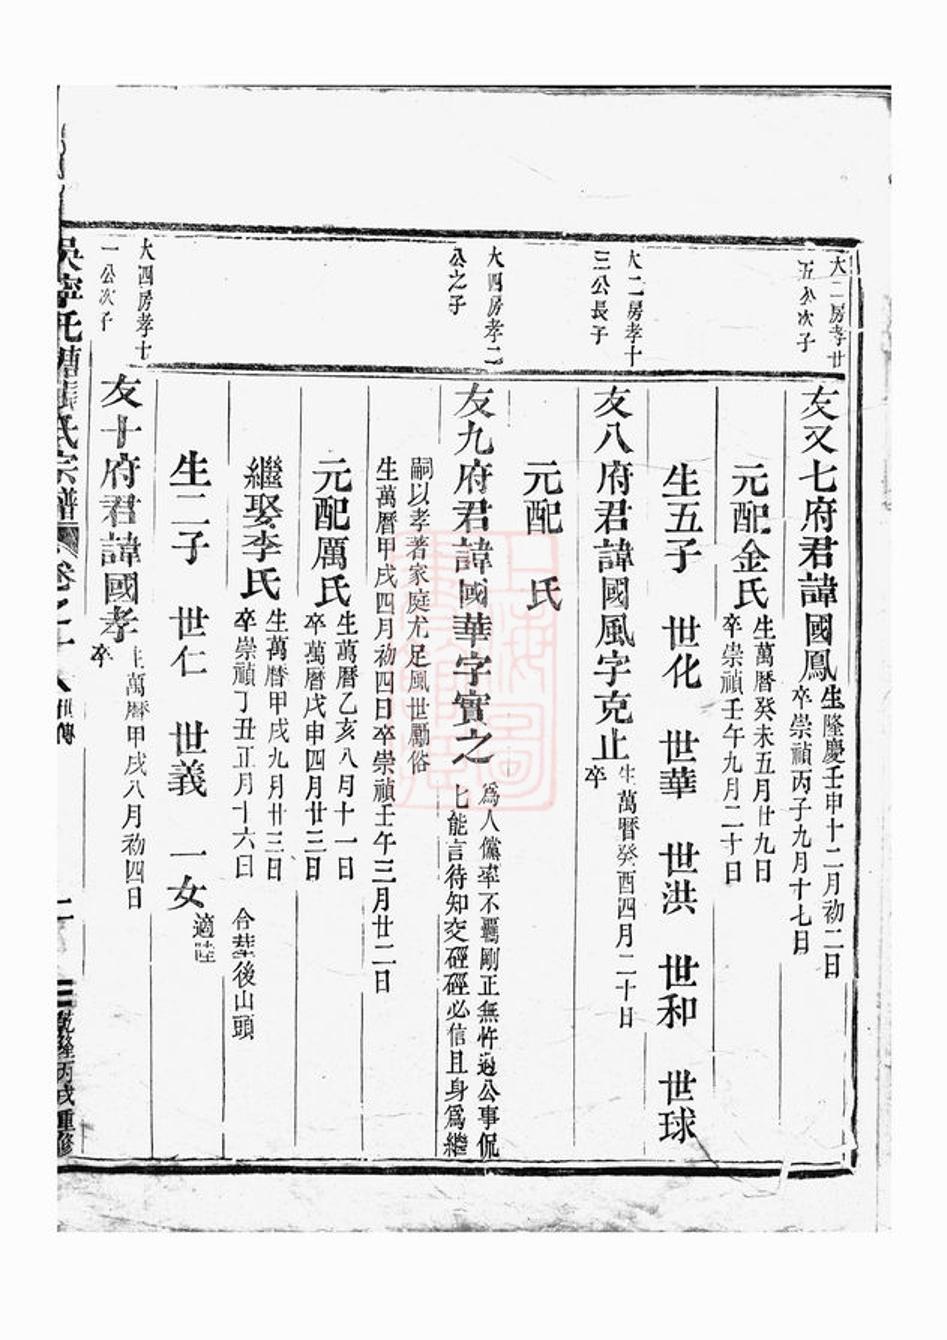 大二房孝廿
五公次子
友又七府君諱國鳳
生隆慶壬申十二月初二日
卒崇禎丙子九月十七日
元配金氏
生萬曆癸未五月廿九日
卒崇禎壬午九月二十日
生五子 世化 世華 世洪 世和 世球
大二房孝十
三公長子
友八府君諱國風字克止
生萬曆癸酉四月二十日
卒
元配 氏
大四房孝二
公之子
友九府君諱國華字實之
為人儻率不羈剛正無忤遇公事侃
匕能言待知交硜硜必信且身為繼
嗣以孝著家庭尤足風世勵俗
生萬曆甲戌四月初四日卒崇禎壬午三月廿二日
元配厲氏
生萬曆乙亥八月十一日
卒萬曆戊申四月廿三日
繼娶李氏
生萬曆甲戌九月廿三日
卒崇禎丁丑正月十六日
合塟後山頭
生二子 世仁 世義 一女
適陸
大四房孝十
一公次子
友十府君諱國孝
生萬曆甲戌八月初四日
卒
吳寧托塘張氏宗譜
卷之
八
傳
二
乾隆丙戌重修